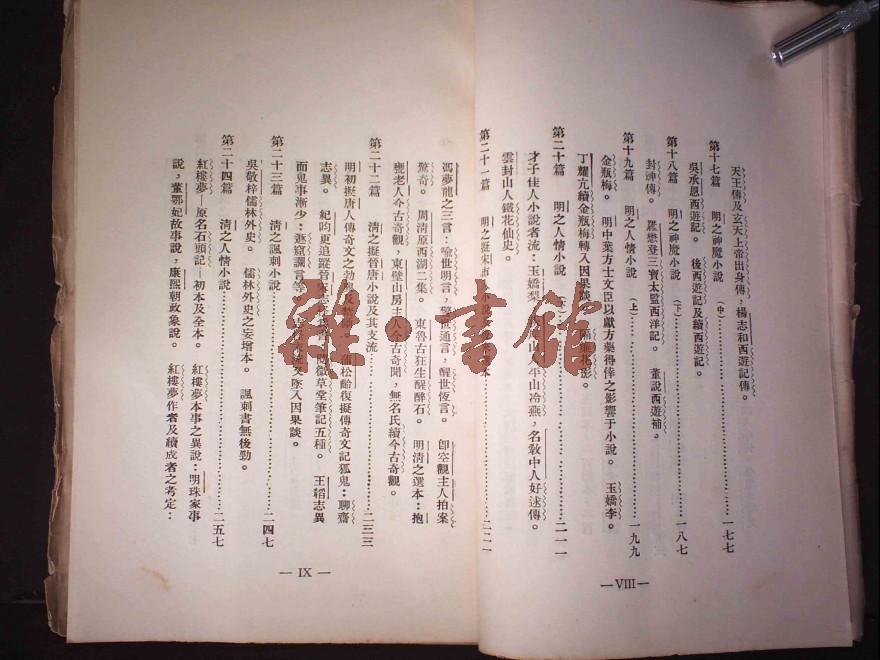 天王傳及玄天上帝出身傳，楊志和西遊記傳。
第十七篇 明之神魔小說（中）……一七七
吳承恩西遊記。 後西遊記及續西遊記。
第十八篇 明之神魔小說（下）……一八七
封神傳。 羅懋登三寶太監西洋記。 董說西遊補。
第十九篇 明之人情小說（上）……一九九
金瓶梅。 明中葉方士文臣以獻方藥得倖之影響于小說。 玉嬌李。
丁耀亢續金瓶梅轉入因果談。
第二十篇 明之人情小說……二一一
才子佳人小說者流：玉嬌梨，平山冷燕，名敎中人好逑傳。
雲封山人鐵花仙史。
第二十一篇 明之擬宋市人小說……本……二二一
馮夢龍之三言：喻世明言，警世通言，醒世恆言。 卽空觀主人拍案
驚奇。 周清原西湖二集。 東魯古狂生醒醉石。 明清之選本：抱
甕老人今古奇觀，東壁山房主人今古奇聞，無名氏續今古奇觀。
第二十二篇 清之擬晉唐小說及其支流……二三三
明初擬唐人傳奇文之勃……松齡復擬傳奇文記狐鬼：聊齋
志異。 紀昀更追蹤晉宋志……微草堂筆記五種。 王韜志異
而鬼事漸少：遯窟讕言等。……墜入因果談。
第二十三篇 清之諷刺小說……二四七
吳敬梓儒林外史。 儒林外史之妄增本。 諷刺書無後勁。
第二十四篇 清之人情小說……二五七
紅樓夢—原名石頭記—初本及全本。 紅樓夢本事之異說：明珠家事
說，董鄂妃故事說，康熙朝政象說。 紅樓夢作者及續成者之考定：
— VIII —
— IX —
雅·書館